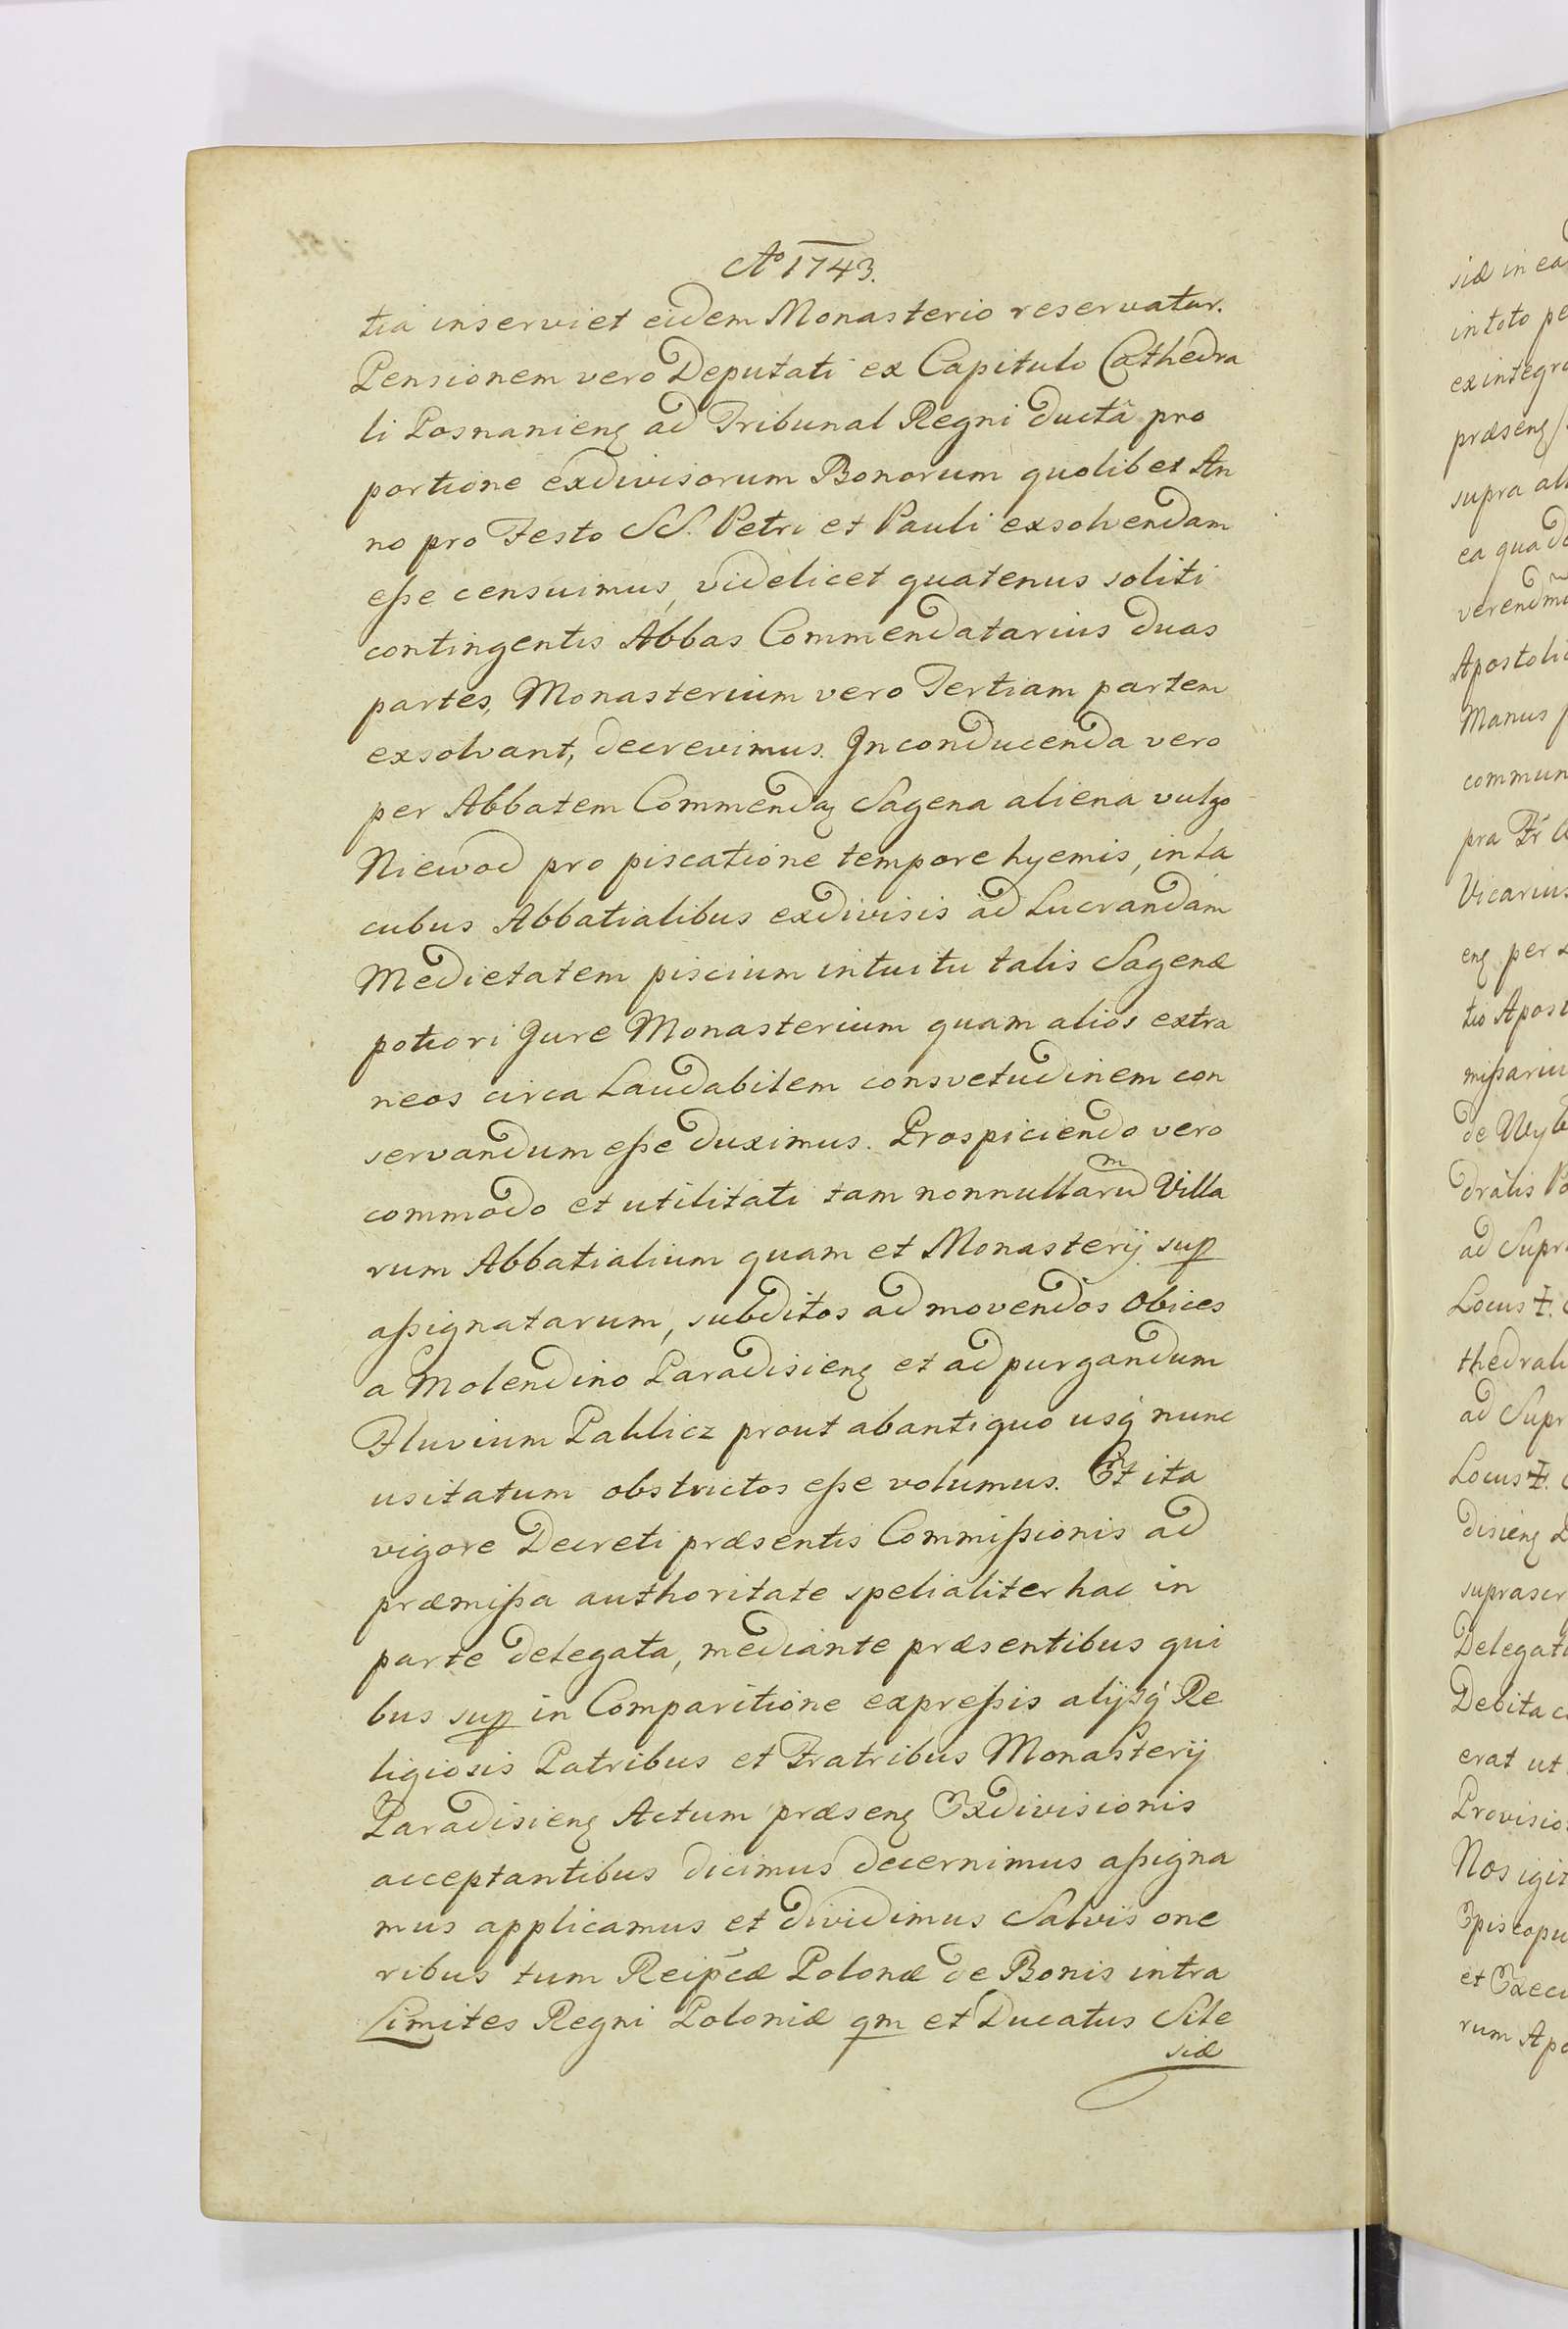 Ao 1743.
tia inserviet eidem Monasterio reservatur.
Pensionem vero Deputati ex Capitulo Cathedra
li Posnanieng ad Tribunal Regni ductâ pro
portione exdivisorum Bonorum quolibet An
no pro Festo SS. Petri et Pauli exsolvendam
eſse censuimus, videlicet quatenus soliti
contingentis Abbas Commendatarius duas
partes, Monasterium vero Tertiam partem
exsolvant, decrevimus. In conducenda vero
per Abbatem Commendaȝ Sagena aliena vulgo
Niewod pro piscatione tempore hyemis, in la
cubus Abbatialibus exdivisis ad Lucrandam
Medietatem piscium intuitu talis Sagenæ
potiori Jure Monasterium quam alios extra
neos circa Laudabilem consvetudinem con
servandum eſse duximus. Prospiciendo vero
commodo et utilitati tam nonnullarum Villa
rum Abbatialium quam et Monasterij sup
aſsignatarum, subditos ad movendos Obices
a Molendino Paradisieng et ad purgandum
Fluvium Pahlicz prout ab antiquo usq́ nunc
usitatum obstrictos eſse volumus. Et ita
vigore Decreti præsentis Commiſsionis ad
præmiſsa authoritate spelialiter hac in
parte delegata, mediante præsentibus qui
bus sup in Comparitione expreſsis alijsq́ Re
ligiosis Patribus et Fratribus Monasterij
Paradisieng Actum præseng Exdivisionis
acceptantibus dicimus decernimus aſsigna
mus applicamus et dividimus Salvis one
ribus tum Reip̃cæ Polonæ de Bonis intra
Limites Regni Poloniæ qm et Ducatus Sile
siæ
siæ in ea
in toto pe
ex integr
præseng
supra
ea qua
Apostoli
Manus
commun
pra Fr
Vicarius
eng per
tio Apost
miſsariu
de Wyb
dralis Po
ad Supr
Locus
thedrali
ad Supr
Locus
disieng
suprascr
Delegat
Debita
erat ut
Provisio
Nos igit
Episcopu
et Execu
rum Apo